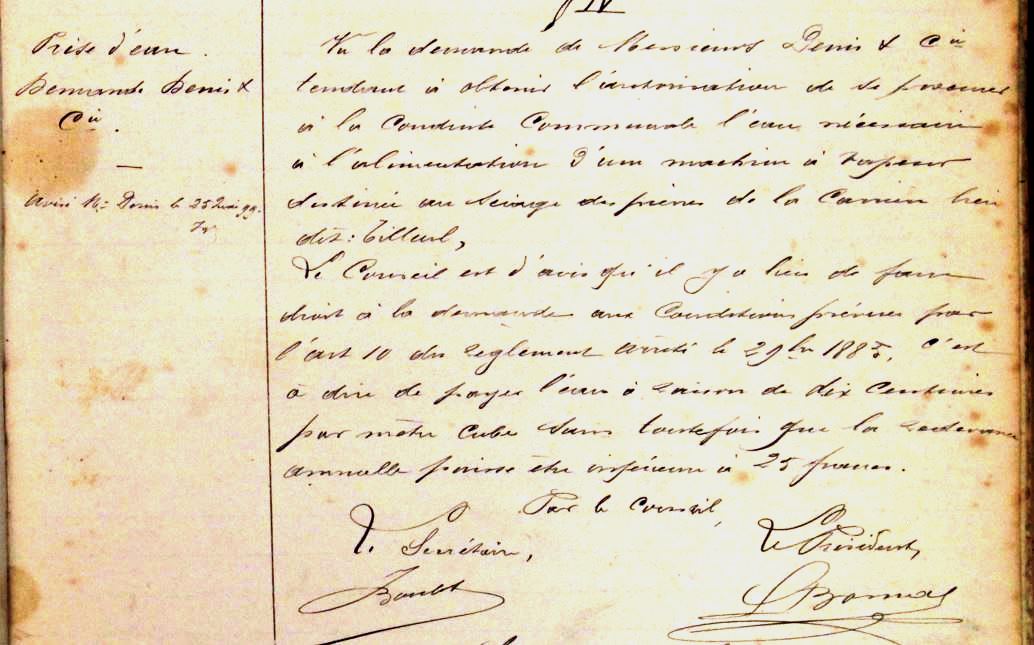 IV
Prise d'eau.
Demande Denis &
Cie.
Avisé Mr Denis le 25 Mai 99.
Vu la demande de Messieurs Denis & Cie
tendant à obtenir l'autorisation de se procurer
à la Conduite Communale l'eau nécessaire
à l'alimentation d'une machine à vapeur
destinée au sciage des pierres de la Carrière lieu
dit: Tilleul,
Le Conseil est d'avis qu'il y a lieu de faire
droit à la demande aux Conditions prévues par
l'art 10 du règlement arrêté le 29 bre 1885, c'est
à dire de payer l'eau à raison de dix centimes
par mètre cube sans toutefois que la redevance
annuelle puisse être inférieure à 25 francs.
Par le Conseil,
Le Secrétaire,
Le Président,